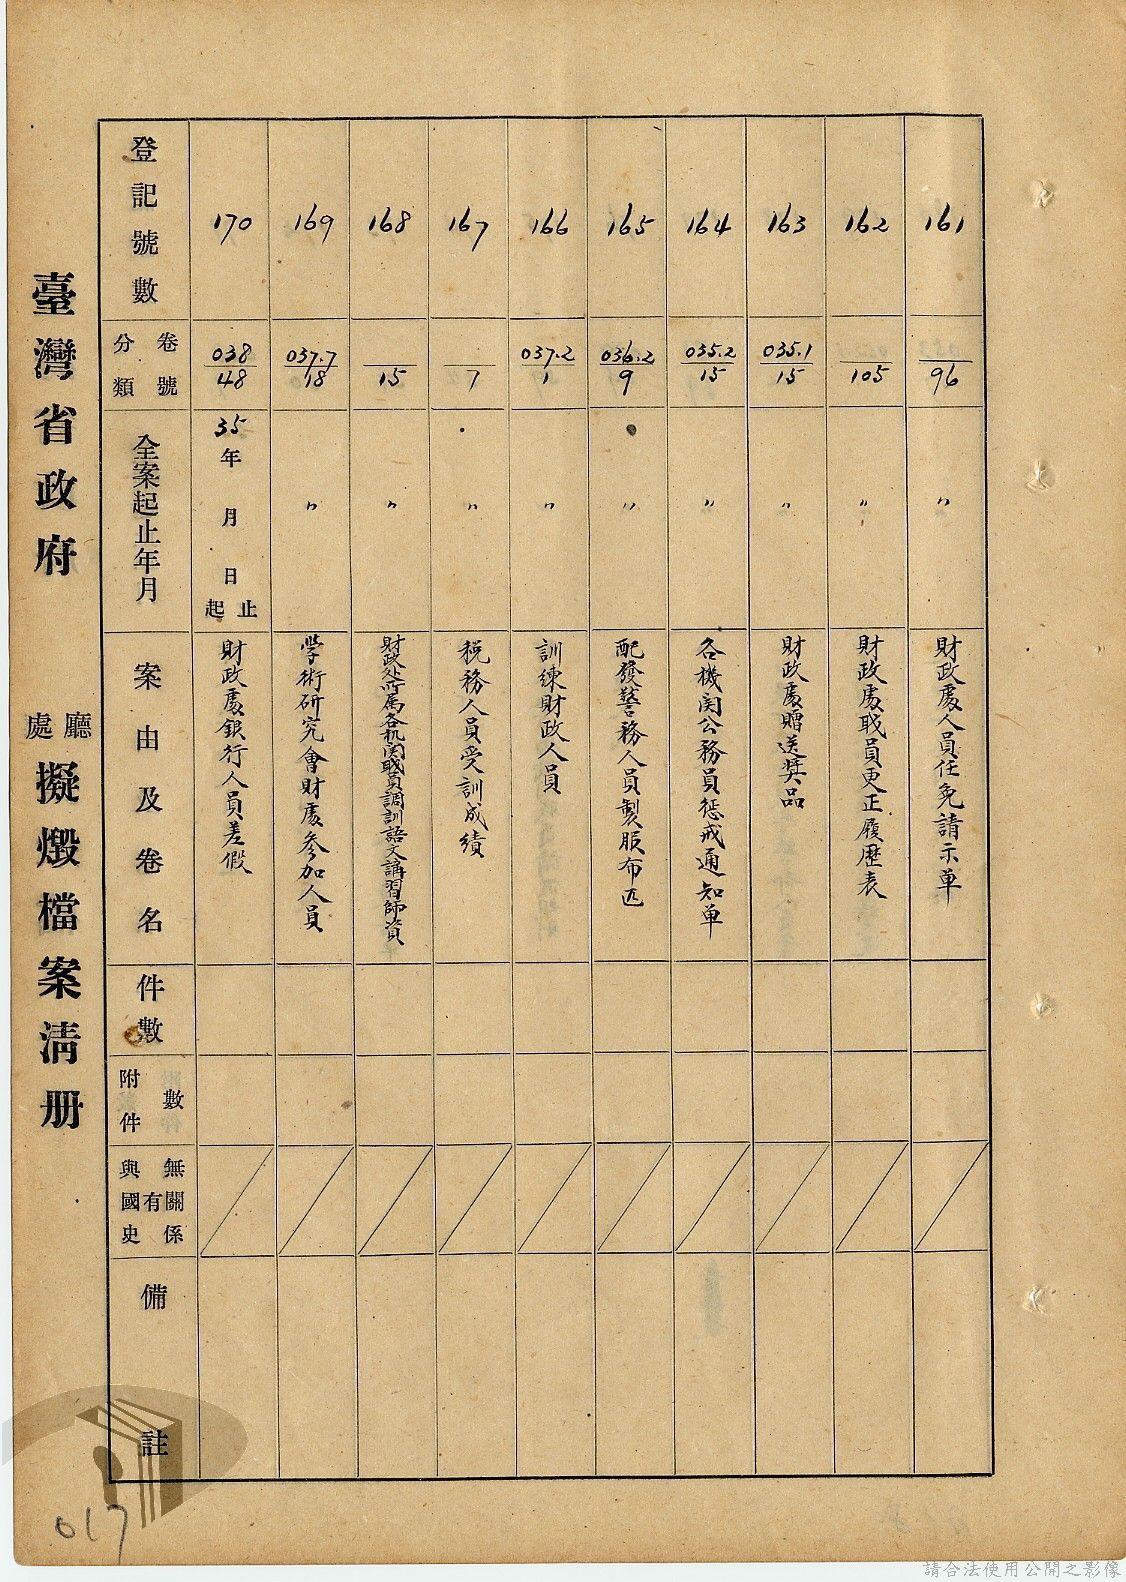 臺灣省政府 廳處 擬燬檔案清册
登記號數
170
169
168
167
166
165
164
163
162
161
分類 卷號
038/48
037.7/18
/15
/7
037.2/1
036.2/9
035.2/15
035.1/15
/105
/96
全案起止年月
35年 月 日起止
〃
〃
〃
〃
〃
〃
〃
〃
〃
案由及卷名
財政處銀行人員差假
學術研究會財處參加人員
財政处所属各机関職員調訓語文講習師資
稅務人員受訓成績
訓練財政人員
配發警務人員製服布匹
各機関公務員惩戒通知单
財政處贈送獎品
財政處職員更正履歷表
財政處人員任免請示单
件數
附件數
與國史有無關係
備註
017
請合法使用公開之影像